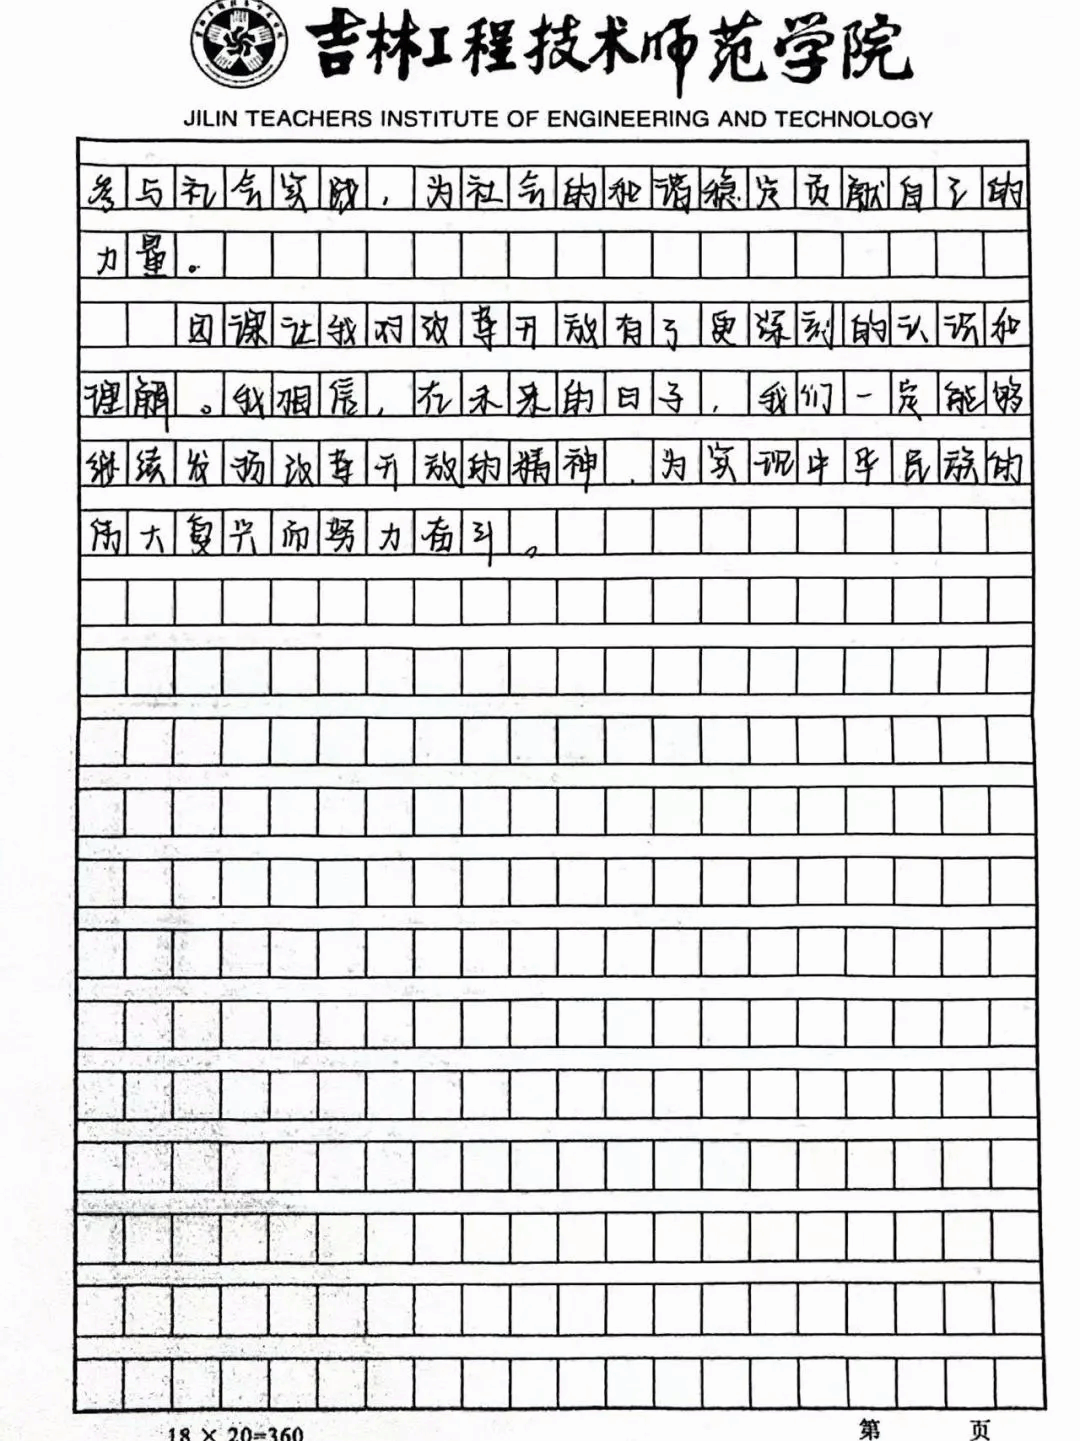 吉林工程技术师范学院
JILIN TEACHERS INSTITUTE OF ENGINEERING AND TECHNOLOGY
参与社会实践，为社会的和谐稳定贡献自己的
力量。
团课让我对改革开放有了更深刻的认识和
理解。我相信，在未来的日子，我们一定能够
继续发扬改革开放的精神，为实现中华民族的
伟大复兴而努力奋斗。
18 × 20=360
第 页